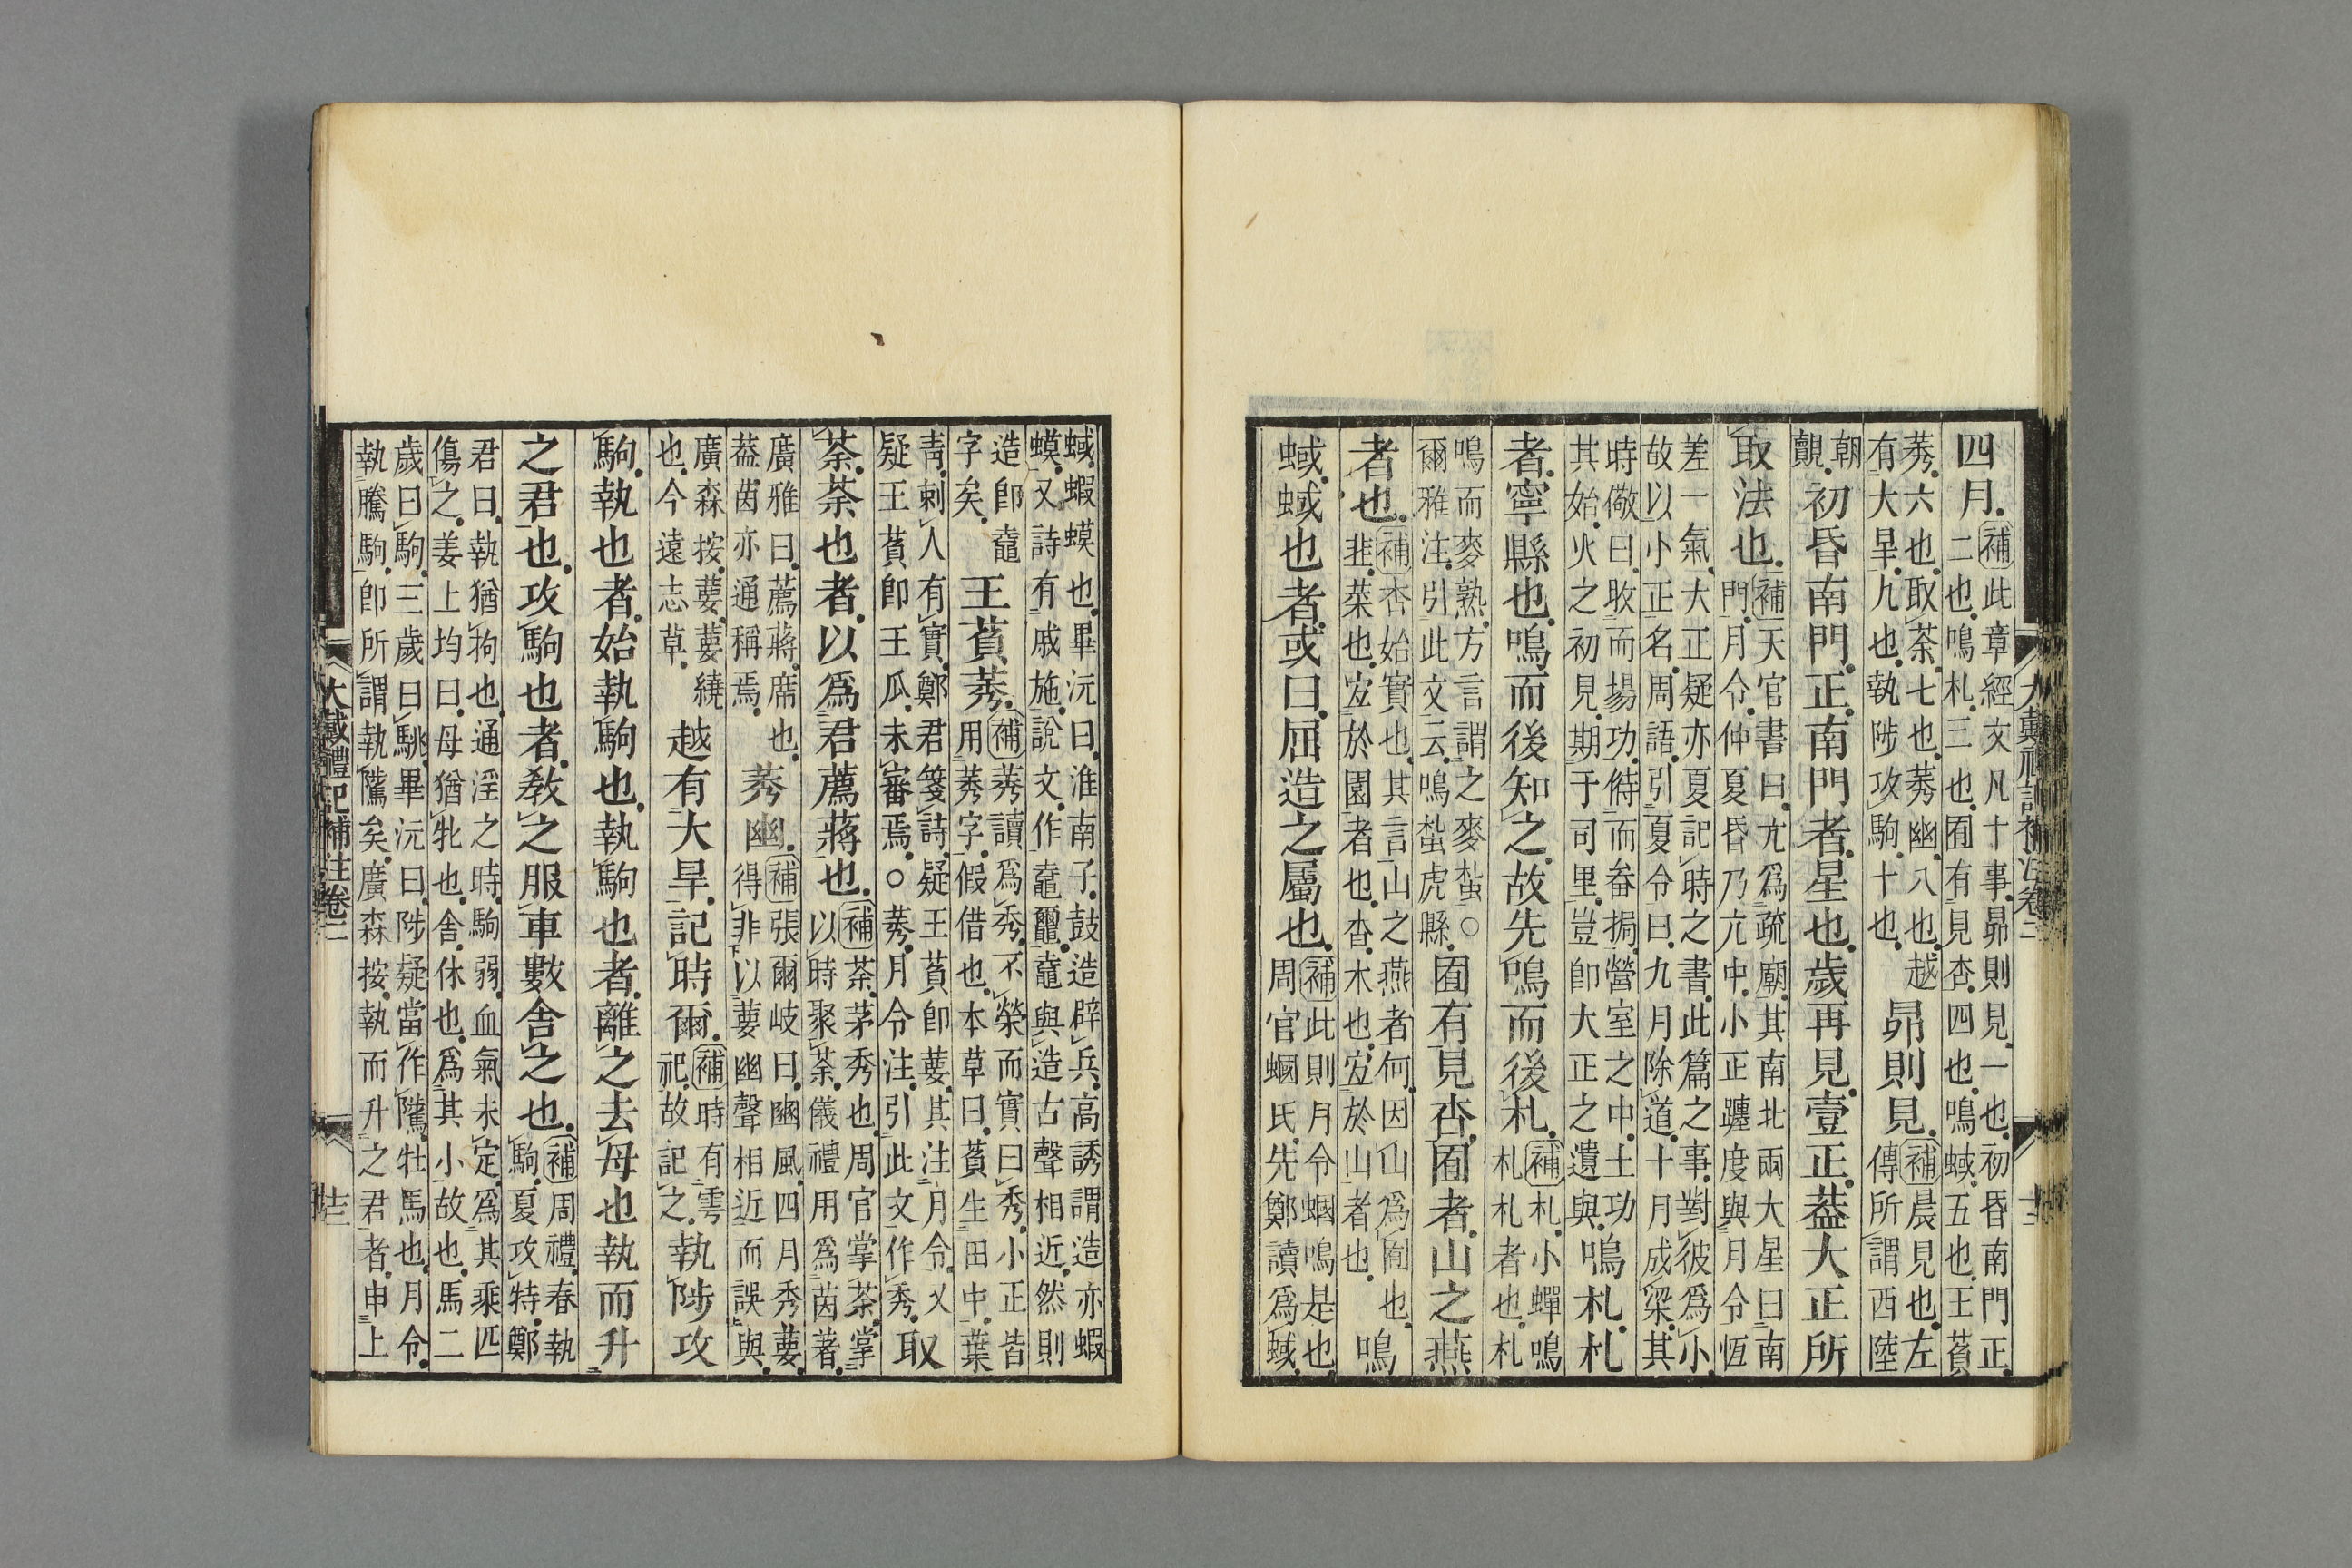 大戴禮記補注卷二
四月補此章經文凡十事昴則見一也初昏南門正
二也鳴札三也囿有見杏四也鳴蜮五也王萯
莠六也取荼七也莠幽八也越
有大旱九也執陟攻駒十也昴則見補晨見也左
傳所謂西陸
朝覿初昏南門正南門者星也歲再見壹正蓋大正所
取法也補天官書曰亢爲疏廟其南北兩大星曰南
門月令仲夏昏乃亢中小正躔度與月令恆
差一氣大正疑亦夏記時之書此篇之事對彼爲小
故以小正名周語引夏令曰九月除道十月成梁其
時儆曰收而場功偫而畚挶營室之中土功
其始火之初見期于司里豈卽大正之遺與鳴札札
者寧縣也鳴而後知之故先鳴而後札補札小蟬鳴
札札者也札
鳴而麥熟方言謂之麥蚻○
爾雅注引此文云鳴蚻虎縣囿有見杏囿者山之燕
者也補杏始實也其言山之燕者何因山爲囿也
韭菜也宐於園者也杏木也宐於山者也鳴
蜮蜮也者或曰屈造之屬也補此則月令蟈鳴是也
周官蟈氏先鄭讀爲蜮
蜮蝦蟆也畢沅曰淮南子鼓造辟兵高誘謂造亦蝦
蟆又詩有戚施說文作鼀𪓿鼀與造古聲相近然則
造卽鼀
字矣王萯莠補莠讀爲秀不榮而實曰秀小正皆
用莠字假借也本草曰萯生田中葉
靑刺人有實鄭君箋詩疑王萯卽葽其注月令又
疑王萯卽王瓜未審焉○莠月令注引此文作秀取
荼荼也者以爲君薦蔣也補荼茅秀也周官掌荼掌
以時聚荼儀禮用爲茵著
廣雅曰薦蔣席也
蓋茵亦通稱焉莠幽補張爾岐曰豳風四月秀葽
得非以葽幽聲相近而誤與
廣森按葽葽繞
也今遠志草越有大旱記時爾補時有雩
祀故記之執陟攻
駒執也者始執駒也執駒也者離之去母也執而升
之君也攻駒也者敎之服車數舍之也補周禮春執
駒夏攻特鄭
君曰執猶拘也通淫之時駒弱血氣未定爲其乘匹
傷之姜上均曰母猶牝也舍休也爲其小故也馬二
歲曰駒三歲曰駣畢沅曰陟疑當作騭牡馬也月令
執騰駒卽所謂執騭矣廣森按執而升之君者申上
大戴禮記補注卷二